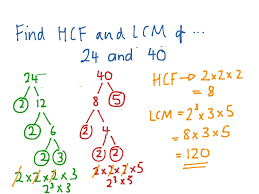 Find HCF and LCM of ...
24 and 40
24
2 12
2 6
2 3
2 × 2 × 2 × 3
2³ × 3
40
8 5
2 4
2 2
2 × 2 × 2 × 5
2³ × 5
HCF → 2 × 2 × 2
= 8
LCM = 2³ × 3 × 5
= 8 × 3 × 5
= 120